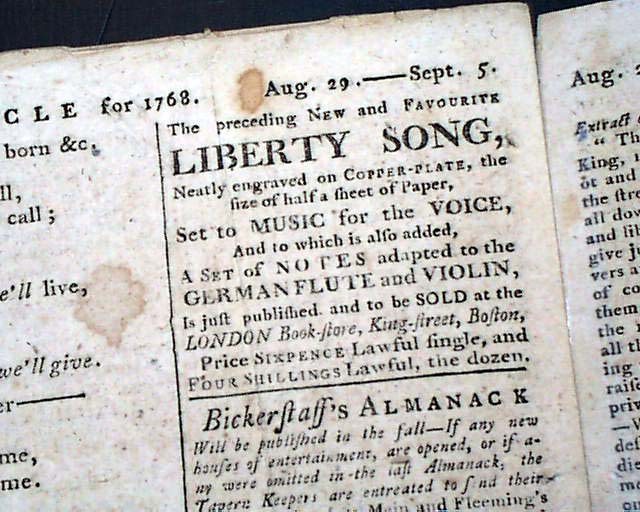 CLE for 1768.
born &c,
ll,
call;
e'll live,
we'll give.
er
me,
me.
Aug. 29.—Sept. 5.
The preceding NEW and FAVOURITE
LIBERTY SONG,
Neatly engraved on COPPER-PLATE, the
ſize of half a ſheet of Paper,
Set to MUSIC for the VOICE,
And to which is alſo added,
A SET of NOTES adapted to the
GERMAN FLUTE and VIOLIN,
Is juſt publiſhed. and to be SOLD at the
LONDON Book-ſtore, King-ſtreet, Boſton,
Price SIXPENCE Lawful ſingle, and
FOUR SHILLINGS Lawful, the dozen.
Bickerſtaff's ALMANACK
Will be publiſhed in the fall—If any new
houſes of entertainment, are opened, or if a-
ny were omitted in the laſt Almanack, the
Tavern Keepers are entreated to ſend their
Mein and Fleeming's
Aug. 2
Extract
" Th
King,
öt and
the ſtre
all dow
and lib
give ju
vers a
of co
them
the
all th
ing
raiſe
priv
—V
def
di
me
on